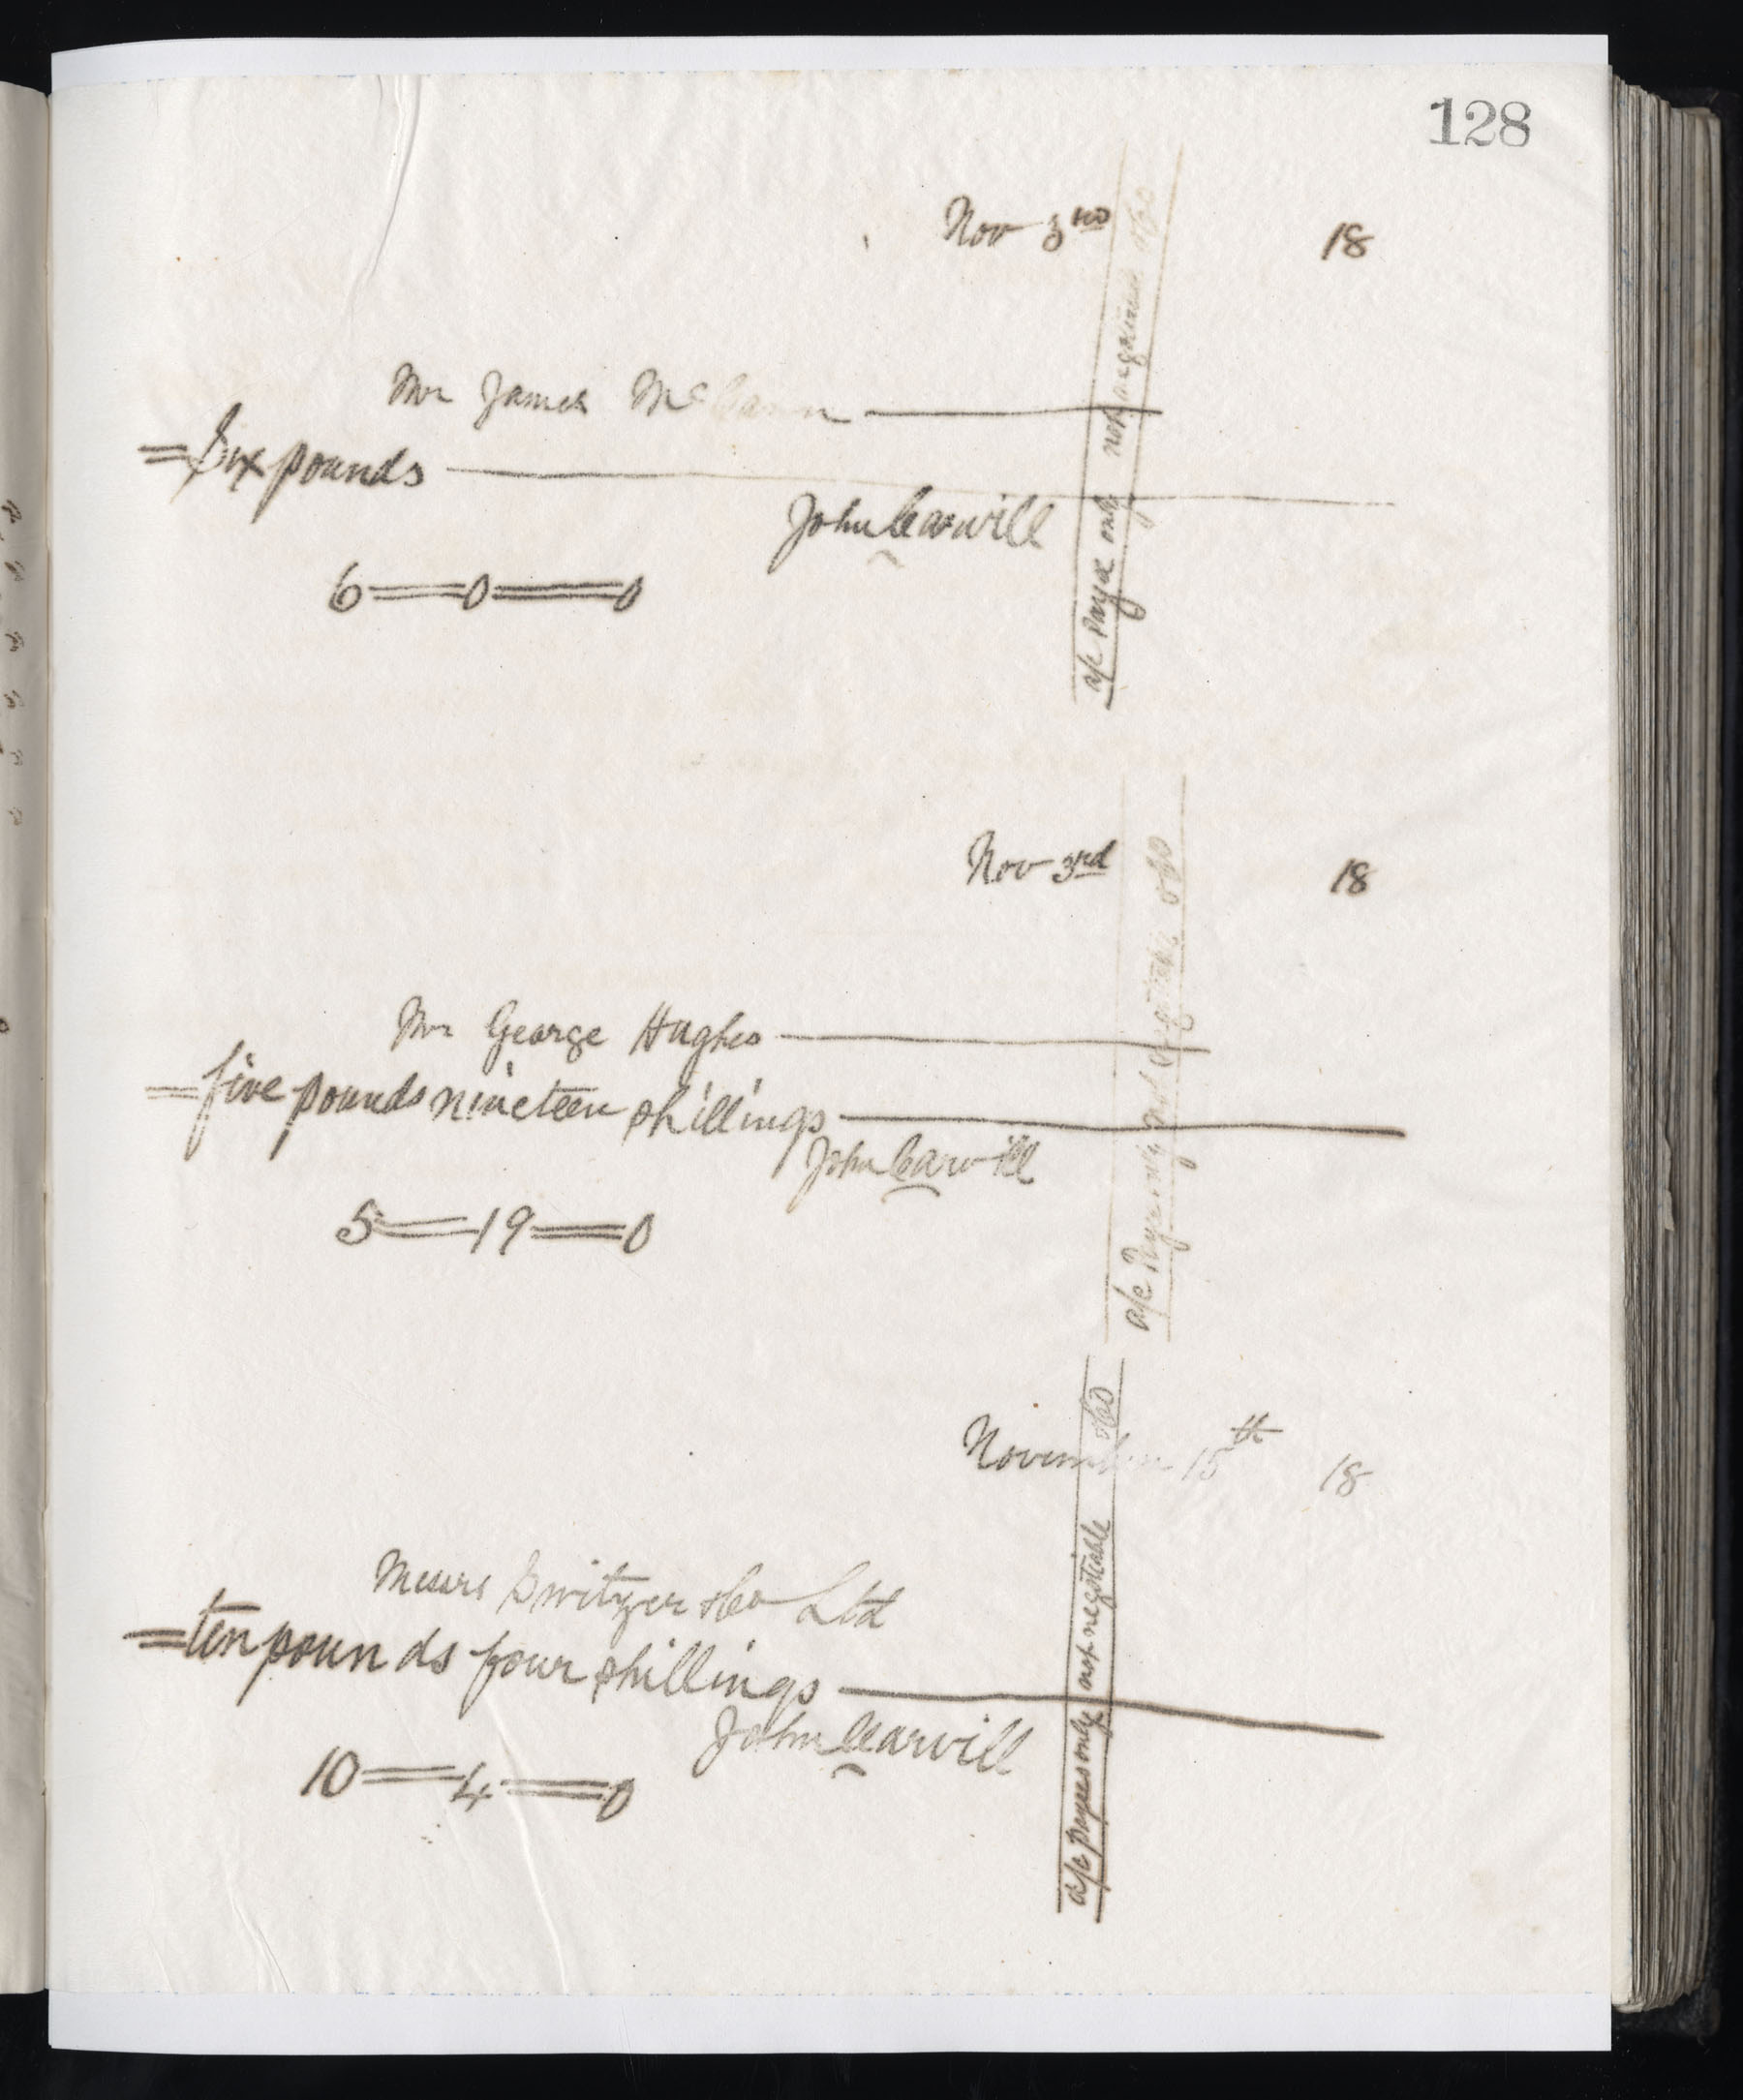 128
Nov 3rd 18
Mr James McCann
= Six pounds
John Carvill
6 = 0 = 0
a/c Payee only not negotiable &Co
Nov 3rd 18
Mr George Hughes
= five pounds nineteen shillings
John Carvill
5 = 19 = 0
a/c Payee only not negotiable &Co
November 15th 18
Messrs Switzer &Co Ltd
= ten pounds four shillings
John Carvill
10 = 4 = 0
a/c payees only not negotiable &Co